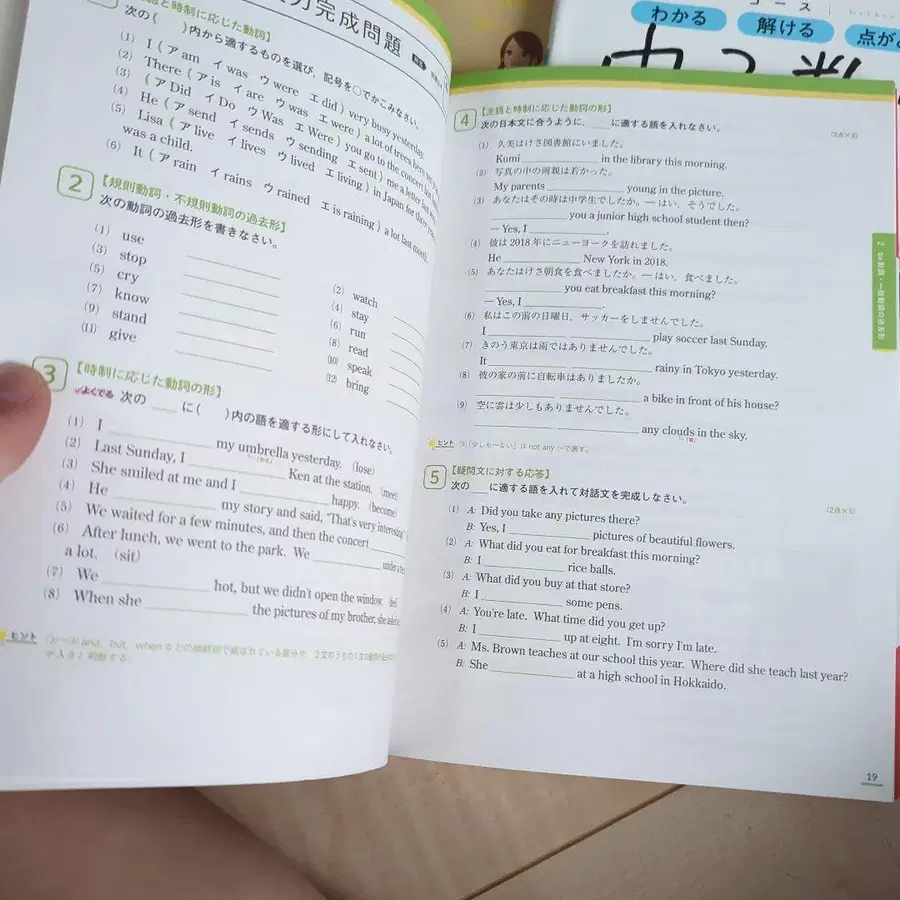 完成問題
語と時制に応じた動詞】
次の( )内から適するものを選び，記号を○でかこみなさい。
(1) I (ア am イ was ウ were エ did) very busy yesterday.
(2) There (ア is イ are ウ was エ were) a lot of trees here
(3) (ア Did イ Do ウ Was エ Were) you go to the concert last
(4) He (ア send イ sends ウ sending エ sent) me a letter last
(5) Lisa (ア live イ lives ウ lived エ living) in Japan for three
was a child.
(6) It (ア rain イ rains ウ rained エ is raining) a lot last month.
2 【規則動詞・不規則動詞の過去形】
次の動詞の過去形を書きなさい。
(1) use
(2) watch
(3) stop
(4) stay
(5) cry
(6) run
(7) know
(8) read
(9) stand
(10) speak
(11) give
(12) bring
3 【時制に応じた動詞の形】
よくでる 次の____に( )内の語を適する形にして入れなさい。
(1) I ____ my umbrella yesterday. (lose)
(2) Last Sunday, I ____ Ken at the station. (meet)
(3) She smiled at me and I ____ happy. (become)
(4) He ____ my story and said, "That's very interesting
(5) We waited for a few minutes, and then the concert ____
(6) After lunch, we went to the park. We ____ under a tree
a lot. (sit)
(7) We ____ hot, but we didn't open the window.
(8) When she ____ the pictures of my brother, she asked
ヒント
わかる
解ける
コース
4 【主語と時制に応じた動詞の形】
次の日本文に合うように，____に適する語を入れなさい。
(3点×9)
(1) 久美はけさ図書館にいました。
Kumi ____ in the library this morning.
(2) 写真の中の両親は若かった。
My parents ____ young in the picture.
(3) あなたはその時は中学生でしたか。— はい，そうでした。
____ you a junior high school student then?
— Yes, I ____.
(4) 彼は2018年にニューヨークを訪れました。
He ____ New York in 2018.
(5) あなたはけさ朝食を食べましたか。— はい，食べました。
____ you eat breakfast this morning?
— Yes, I ____.
(6) 私はこの前の日曜日，サッカーをしませんでした。
I ____ ____ play soccer last Sunday.
(7) きのう東京は雨ではありませんでした。
It ____ ____ rainy in Tokyo yesterday.
(8) 彼の家の前に自転車はありましたか。
____ ____ a bike in front of his house?
(9) 空に雲は少しもありませんでした。
____ ____ ____ any clouds in the sky.
ヒント (9)「少しも〜ない」は not any 〜で表す。
5 【疑問文に対する応答】
次の____に適する語を入れて対話文を完成しなさい。
(2点×5)
(1) A: Did you take any pictures there?
B: Yes, I ____ pictures of beautiful flowers.
(2) A: What did you eat for breakfast this morning?
B: I ____ rice balls.
(3) A: What did you buy at that store?
B: I ____ some pens.
(4) A: You're late. What time did you get up?
B: I ____ up at eight. I'm sorry I'm late.
(5) A: Ms. Brown teaches at our school this year. Where did she teach last year?
B: She ____ at a high school in Hokkaido.
2 be動詞・一般動詞の過去形
19